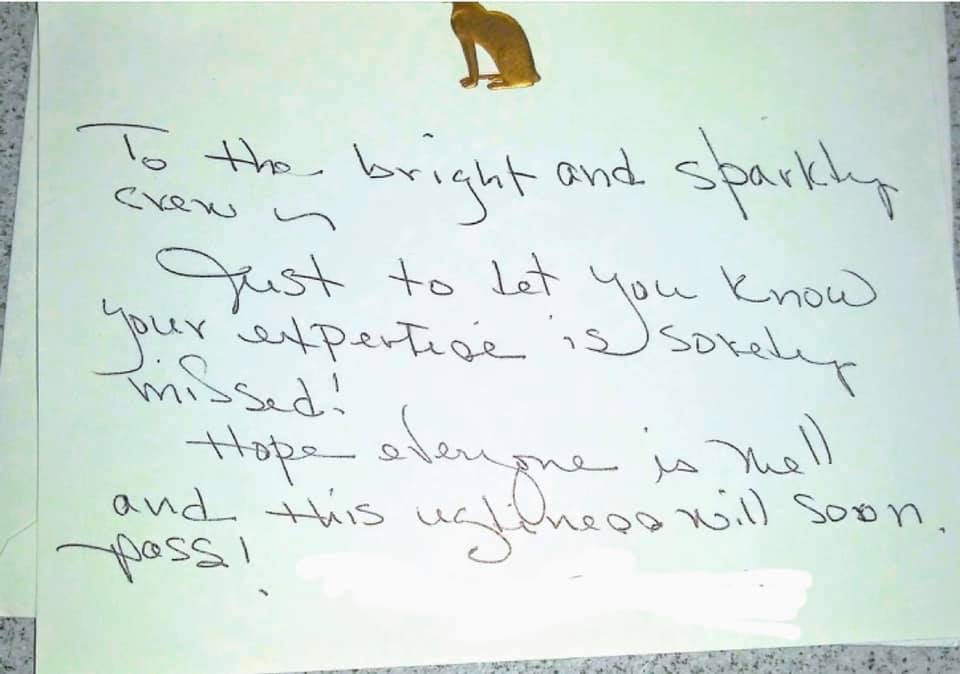 To the bright and sparkly
crew ~
Just to let you know
your expertise is sorely
missed!
Hope everyone is well
and this ugliness will soon.
pass!